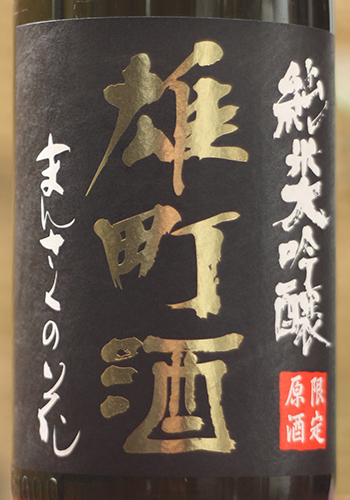 純米大吟醸
限定
原酒
雄町酒
まんさくの花